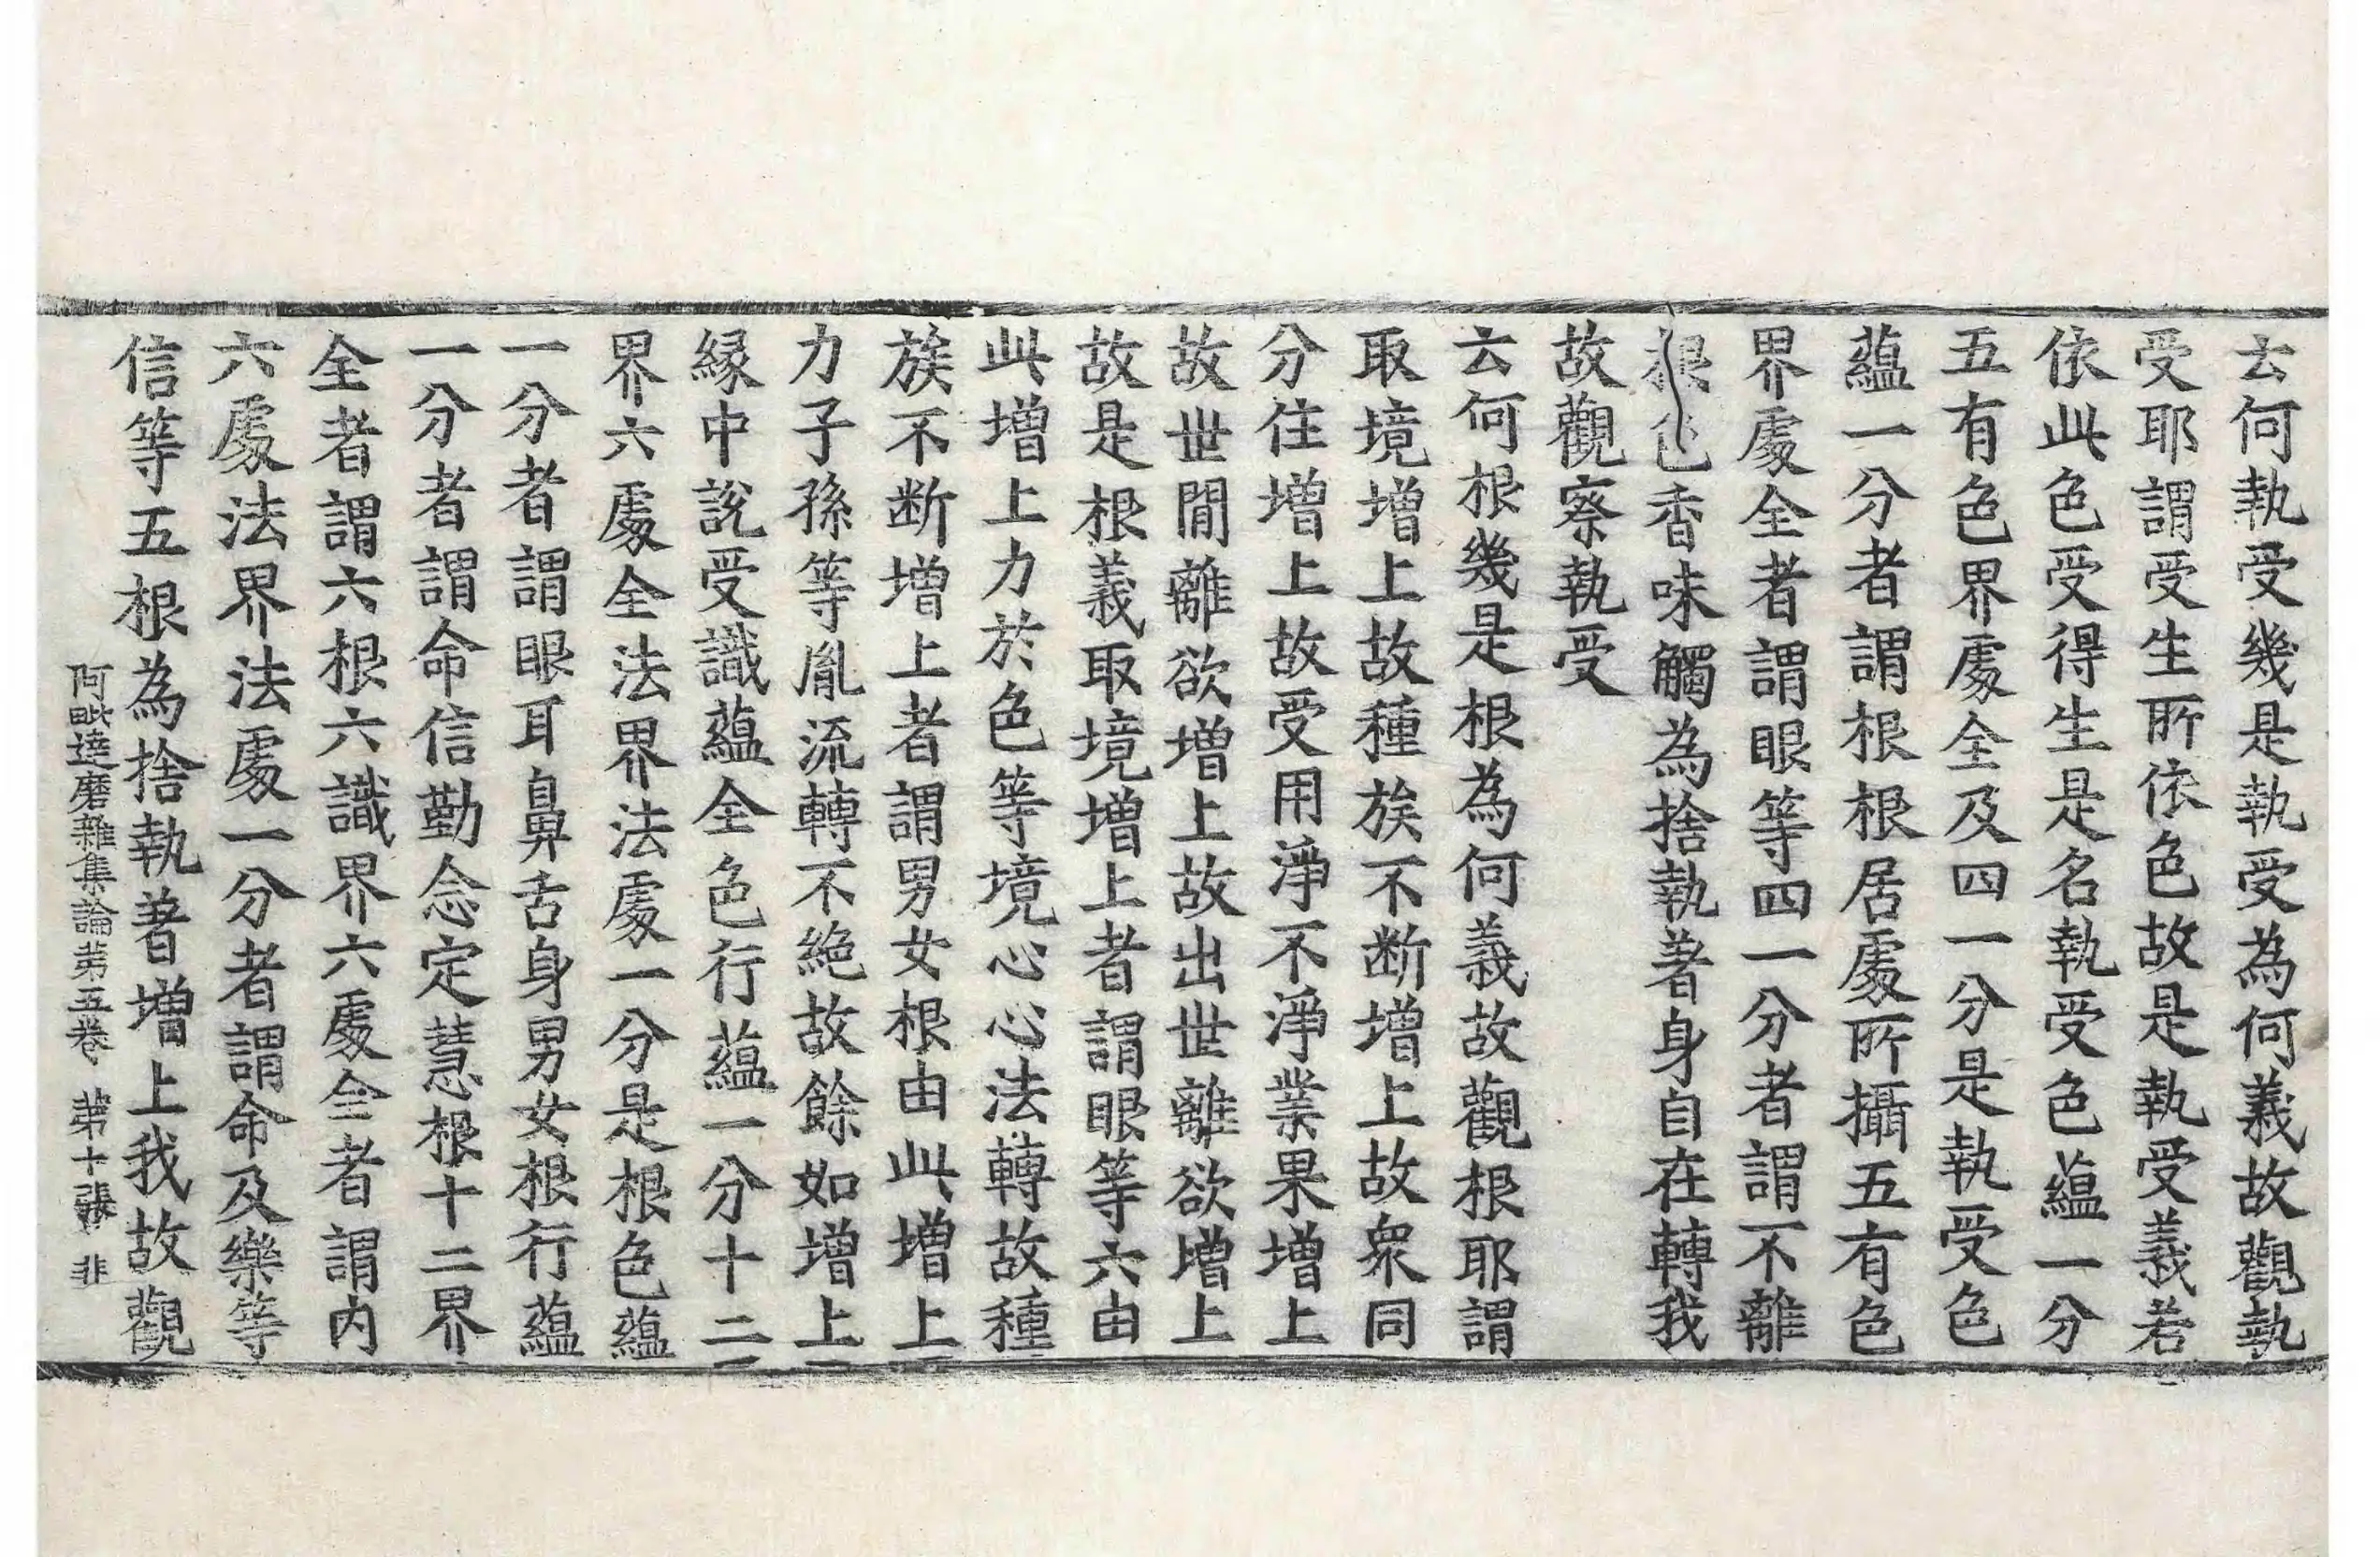 云何執受幾是執受為何義故觀執
受耶謂受生所依色故是執受義若
依此色受得生是名執受色蘊一分
五有色界處全及四一分是執受色
蘊一分者謂根根居處所攝五有色
界處全者謂眼等四一分者謂不離
根色香味觸為捨執著身自在轉我
故觀察執受
云何根幾是根為何義故觀根耶謂
取境增上故種族不断增上故衆同
分住增上故受用淨不淨業果增上
故世間離欲增上故出世離欲增上
故是根義取境增上者謂眼等六由
此增上力於色等境心心法轉故種
族不断增上者謂男女根由此增上
力子孫等胤流轉不絶故餘如增上
縁中說受識蘊全色行蘊一分十二
界六處全法界法處一分是根色蘊
一分者謂眼耳鼻舌身男女根行蘊
一分者謂命信勤念定慧根十二界
全者謂六根六識界六處全者謂内
六處法界法處一分者謂命及樂等
信等五根為捨執著增上我故觀
阿毗達磨雜集論苐五卷 苐十張 非